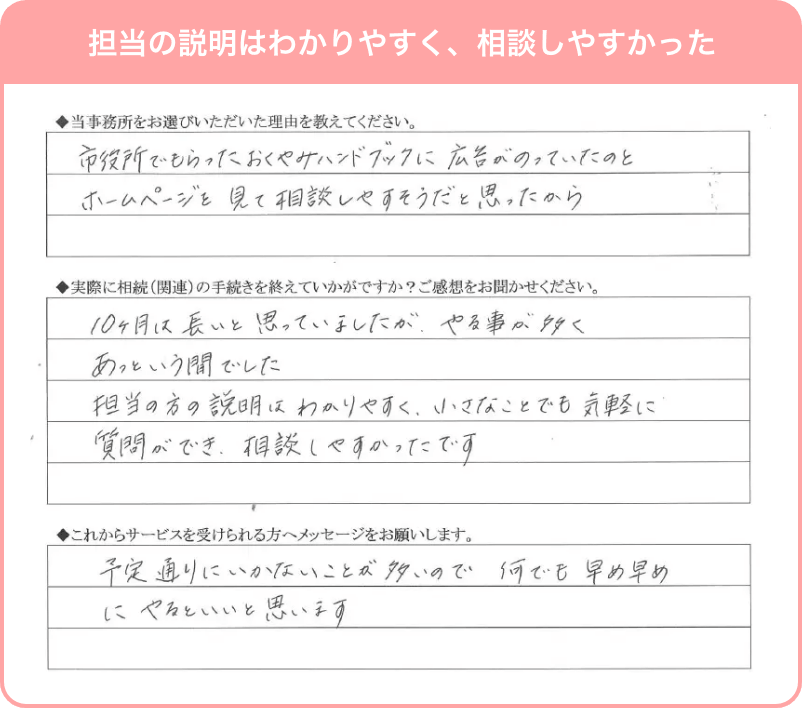 担当の説明はわかりやすく、相談しやすかった
◆当事務所をお選びいただいた理由を教えてください。
市役所でもらったおくやみハンドブックに 広告がのっていたのと
ホームページを 見て相談しやすそうだと思ったから
◆実際に相続(関連)の手続きを終えていかがですか?ご感想をお聞かせください。
10ヶ月は長いと思っていましたが、やる事が多く
あっという間でした
担当の方の説明はわかりやすく、小さなことでも気軽に
質問ができ、相談しやすかったです
◆これからサービスを受けられる方へメッセージをお願いします。
予定通りにいかないことが多いので 何でも早め早め
に やるといいと思います